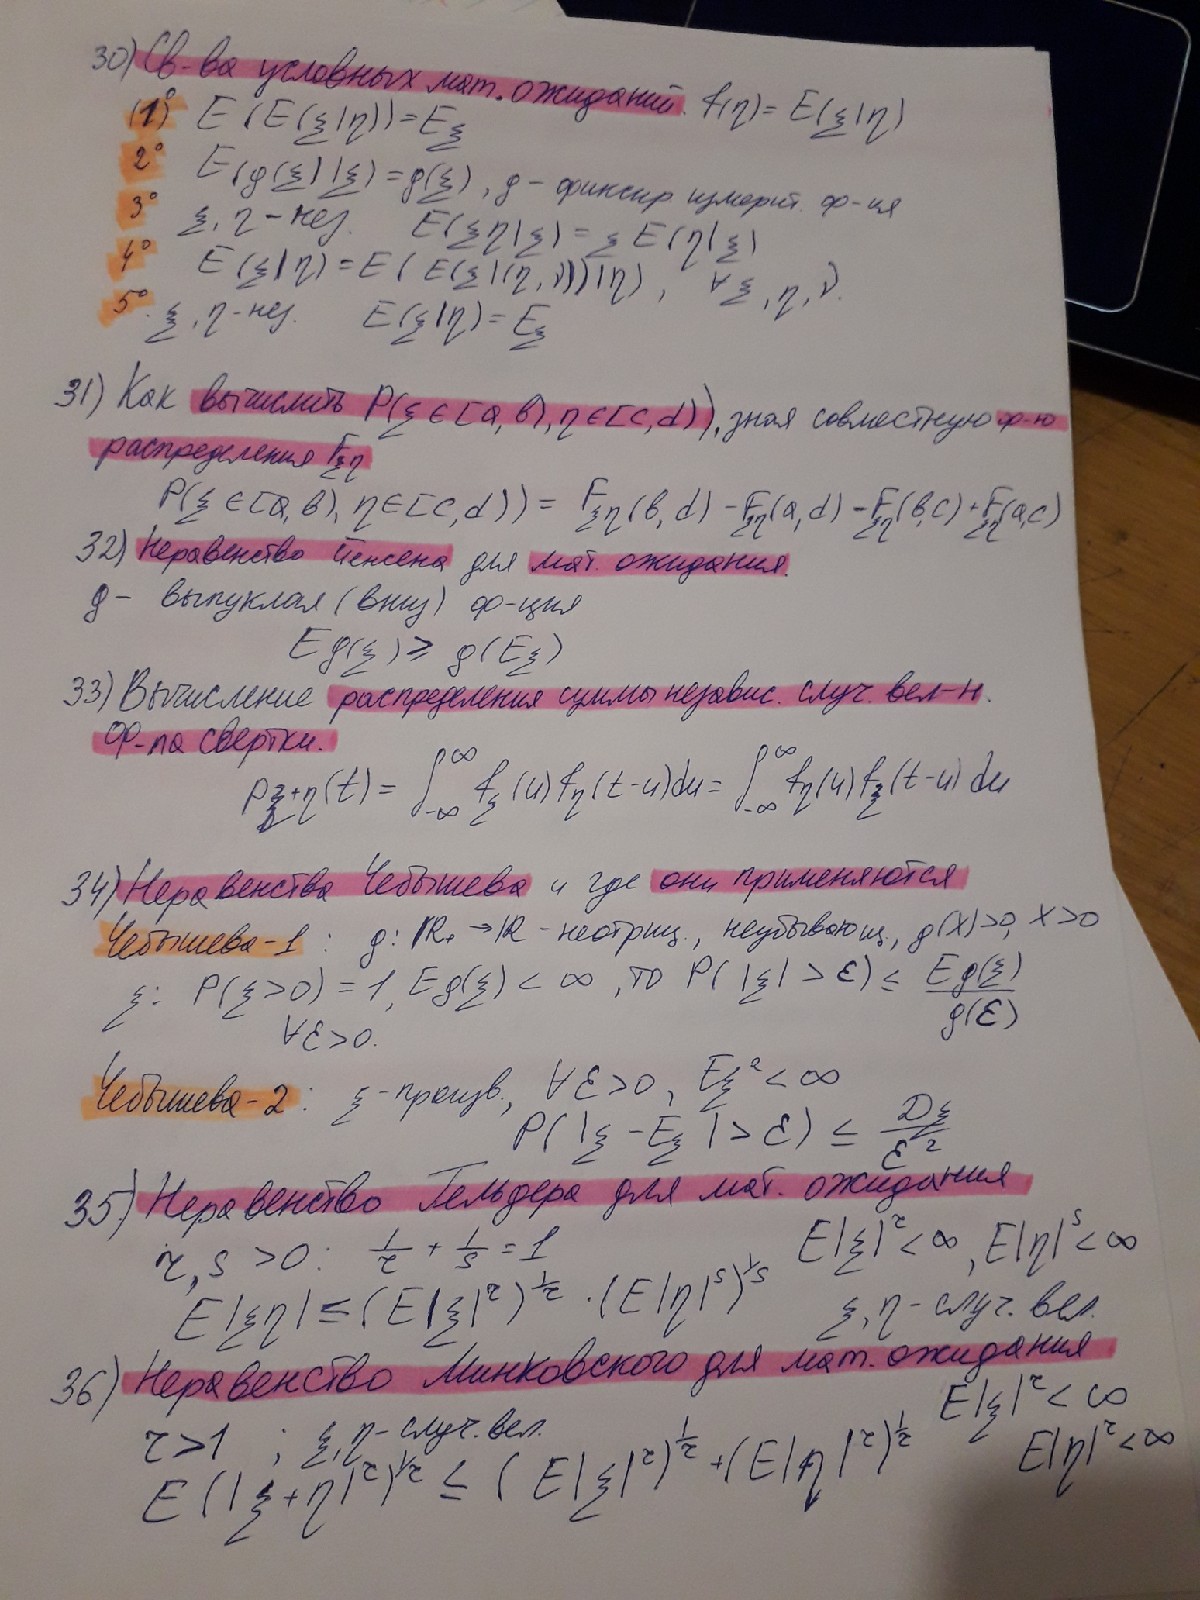 30) Св-ва условных мат. ожиданий. f(η) = E(ξ|η)
1° E(E(ξ|η)) = Eξ
2° E(g(ξ)|ξ) = g(ξ), g - фиксир измерит. ф-ия
3° ξ, η - нез. E(ξη|ξ) = ξ E(η|ξ)
4° E(ξ|η) = E(E(ξ|(η,ν))|η), ∀ξ, η, ν.
5° ξ, η - нез. E(ξ|η) = Eξ
31) Как вычислить P(ξ∈[a,b), η∈[c,d)), зная совместную ф-ю
распределения Fξη
P(ξ∈[a,b), η∈[c,d)) = Fξη(b,d) - Fξη(a,d) - Fξη(b,c) + Fξη(a,c)
32) Неравенство Йенсена для мат. ожидания.
g - выпуклая (вниз) ф-ция
Eg(ξ) ≥ g(Eξ)
33) Вычисление распределения суммы независ. случ. вел-н.
Ф-ла свертки.
pξ+η(t) = ∫_{-∞}^{∞} fξ(u) fη(t-u)du = ∫_{-∞}^{∞} fη(u) fξ(t-u) du
34) Неравенства Чебышева и где они применяются
Чебышева-1: g: R₊→R - неотриц., неубывающ., g(x)>0, x>0
ξ: P(ξ>0) = 1, Eg(ξ) < ∞, то P(|ξ| > ε) ≤ Eg(ξ)/g(ε)
∀ε>0.
Чебышева-2: ξ - произв., ∀ε>0, Eξ² < ∞
P(|ξ - Eξ| > ε) ≤ Dξ/ε²
35) Неравенство Гельдера для мат. ожидания
r, s > 0: 1/r + 1/s = 1 E|ξ|^r < ∞, E|η|^s < ∞
E|ξη| ≤ (E|ξ|^r)^{1/r} · (E|η|^s)^{1/s} ξ, η - случ. вел.
36) Неравенство Минковского для мат. ожидания
r > 1 ; ξ, η - случ. вел. E|ξ|^r < ∞
E(|ξ+η|^r)^{1/r} ≤ (E|ξ|^r)^{1/r} + (E|η|^r)^{1/r} E|η|^r < ∞